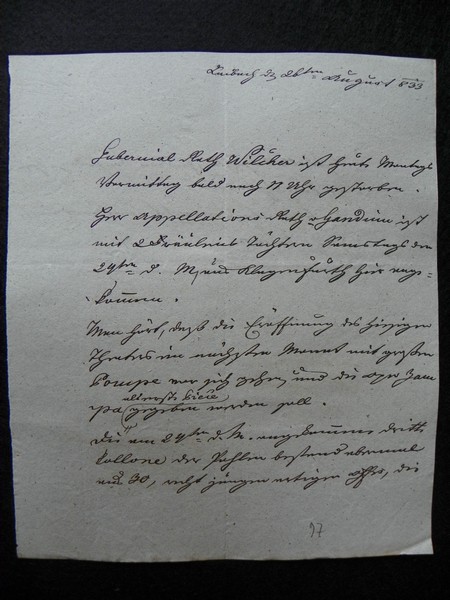 Laibach den 26ten August 833
Gubernial Rath Wilcher ist heute Montags
Vormittag bald nach 11 Uhr gestorben.
Herr Appellations Rath v Gandini ist
mit 2 Fräuleins Töchtern Samstags den
24ten d. M. aus Klagenfurth hier ange-
kommen.
Man hört, daß die Eröffnung des hiesigen
Theaters im nächsten Monat mit großen
Pompe vor sich gehen, und die oper Zam
als erste Piece
pa gegeben werden soll.
Die am 24ten d. M. angekommene dritte
Kollone der Pohlen bestand abermal
aus 30, recht jungen artigen die
97